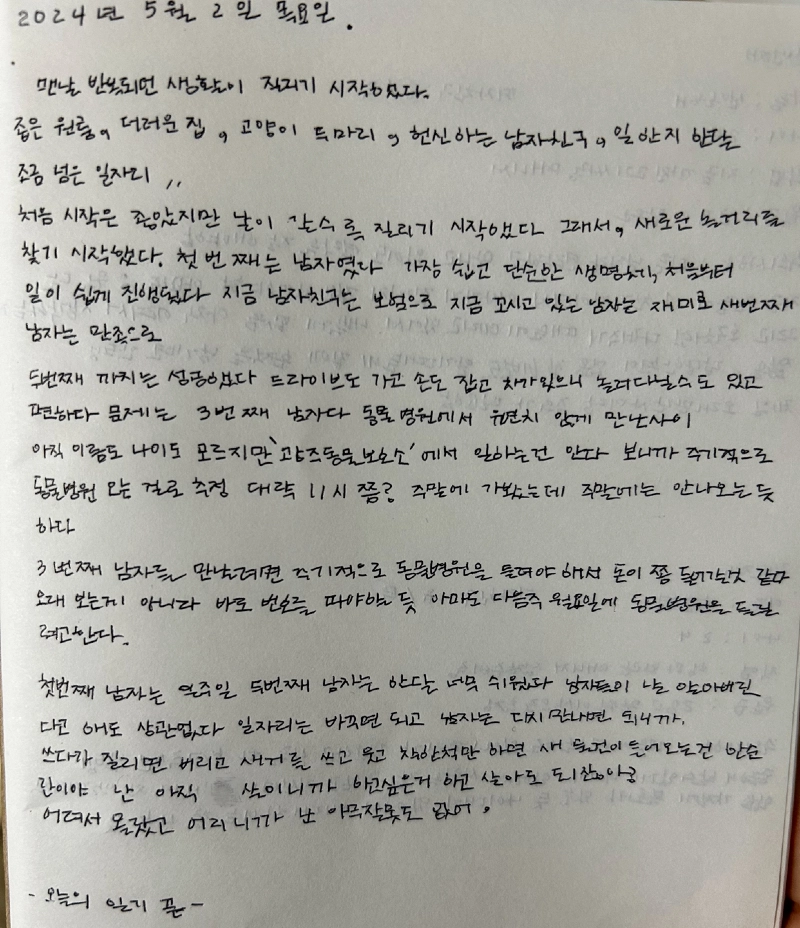 2024년 5월 2일 목요일.
맨날 반복되던 생활이 질리기 시작했다.
좁은 원룸, 더러운 집, 고양이 두마리, 헌신하는 남자친구, 일한지 한달
조금 넘은 일자리 ,,
처음 시작은 좋았지만 날이 갈수록 질리기 시작했다 그래서, 새로운 놀거리를
찾기 시작했다. 첫 번째는 남자였다 가장 쉽고 단순한 생명체, 처음부터
일이 쉽게 진행됐다 지금 남자친구는 보험으로 지금 꼬시고 있는 남자는 재미로 세번째
남자는 만족으로
두번째 까지는 성공했다 드라이브도 가고 손도 잡고 차가있으니 놀러다닐수도 있고
편하다 문제는 3번째 남자다 동물병원에서 우연치 않게 만난사이
아직 이름도 나이도 모르지만 '광주동물보호소'에서 일하는건 안다 보니까 주기적으로
동물병원 오는 걸로 추정 대략 11시 쯤? 주말에 가봤는데 주말에는 안나오는듯
하다
3번째 남자를 만날려면 주기적으로 동물병원을 들려야 해서 돈이 쫌 들어갈것 같다
오래 보는게 아니라 바로 번호를 따야할 듯 아마도 다음주 월요일에 동물병원을 들릴
려고한다.
첫번째 남자는 일주일 두번째 남자는 한달 너무 쉬웠다 남자들이 나를 알아버린
다고 해도 상관없다 일자리는 바꾸면 되고 남자는 다시 만나면 되니까.
쓰다가 질리면 버리고 새거를 쓰고 웃고 착한척만 하면 새 물건이 들어오는건 한순
간이야 난 아직 살이니까 하고싶은거 하고 살아도 되잖아?
어려서 몰랐고 어리니까 난 아무잘못도 없어.
- 오늘의 일기 끝 -